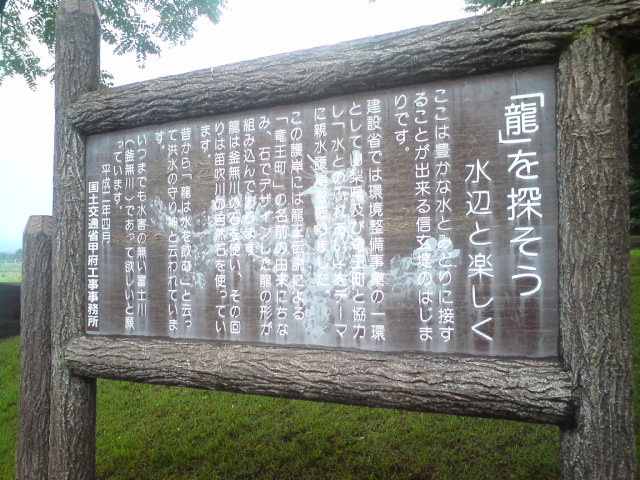 「龍」を探そう
水辺と楽しく
ここは豊かな水とみどりに接す
ることが出来る信玄堤のはじま
りです。
建設省では環境整備事業の一環
として山梨県及び竜王町と協力
し「水とのふれあい」をテーマ
に親水護岸を造りました
この護岸には龍王伝説による
「竜王町」の名前の由来にちな
み、石でデザインした龍の形が
組み込んであります。
龍は釜無川の石を使い、その回
りは笛吹川の石を使ってい
ます。
昔から「龍は水を飲む」と云っ
て洪水の守り神と云われていま
す。
いつまでも水害の無い富士川
(釜無川)であって欲しいと願
っています。
平成二年四月
国土交通省甲府工事事務所